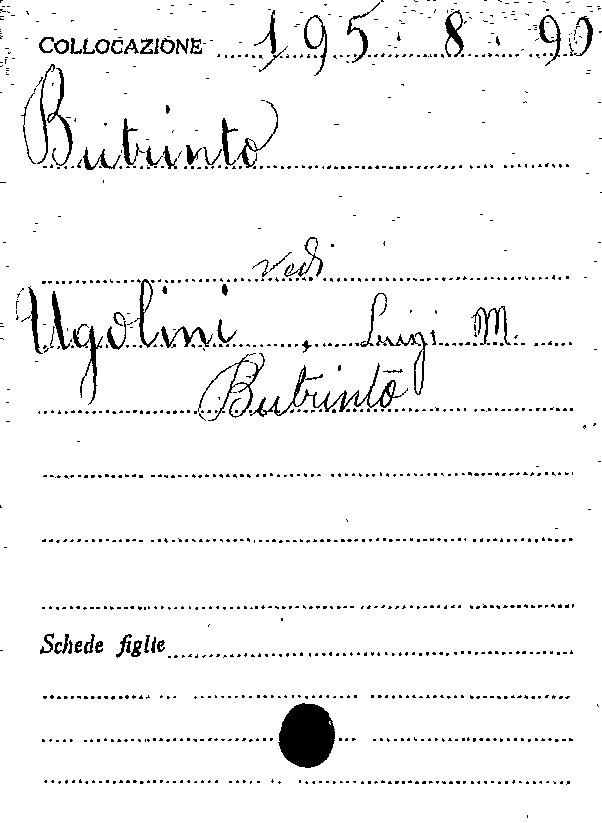 COLLOCAZIONE 195. 8. 90
Butrinto
vedi
Ugolini, Luigi M.
Butrinto
Schede figlie